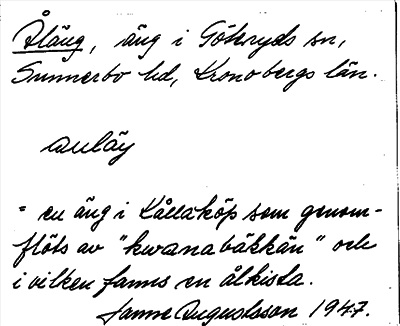 Åläng, äng i Göteryds sn,
Sunnerbo hd, Kronobergs län.
auläŋ
= en äng i Kållaköp som genom-
flöts av "kwanabäkkän" och
i vilken fanns en ålkista.
Janne Augustsson 1947.